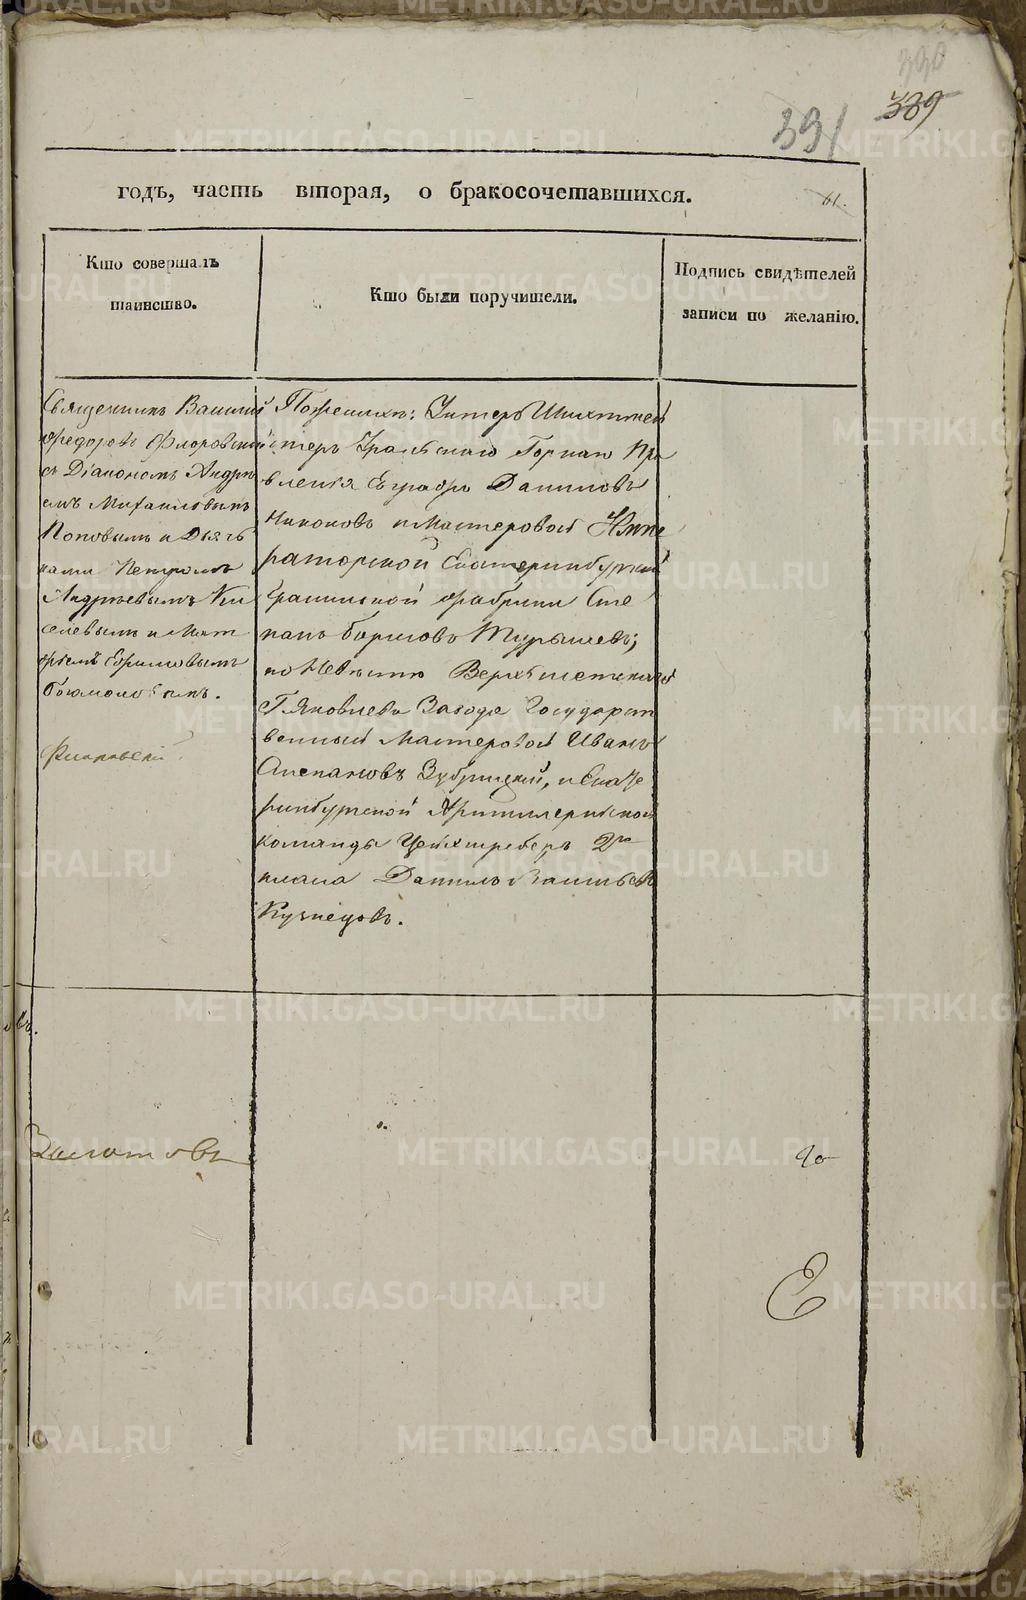 390
389
391
годъ, часть вторая, о бракосочетавшихся.
61.
Кто совершалъ
таинство.
Кто были поручители.
Подпись свидѣтелей
записи по желанію.
Священникъ Василій
Федоровъ Флоровскій
съ Діакономъ Андре
емъ Михаиловымъ
Поповымъ и Дьяч
ками Петромъ
Андреевымъ Ки
селевымъ и Мат
фѣемъ Ефимовымъ
Богомоловымъ.
Флоровскій
По Женихѣ: Унтеръ Шихтмей
стеръ Уральскаго Горнаго Пра
вленія Евграфъ Даниловъ
Никоновъ и Мастеровой Импе
раторской Екатеринбургской
Гранильной фабрики Сте
панъ Борисовъ Турышевъ;
по Невѣстѣ Верхъ Исетскаго
Г. Яковлева Завода Государст
венный Мастеровой Иванъ
Степановъ Зубрицкій, и Екате
ринбургской Артиллерійской
команды Цейхшреберъ 2го
класа Данилъ Васильевъ
Кузнецовъ.
METRIKI.GASO-URAL.RU